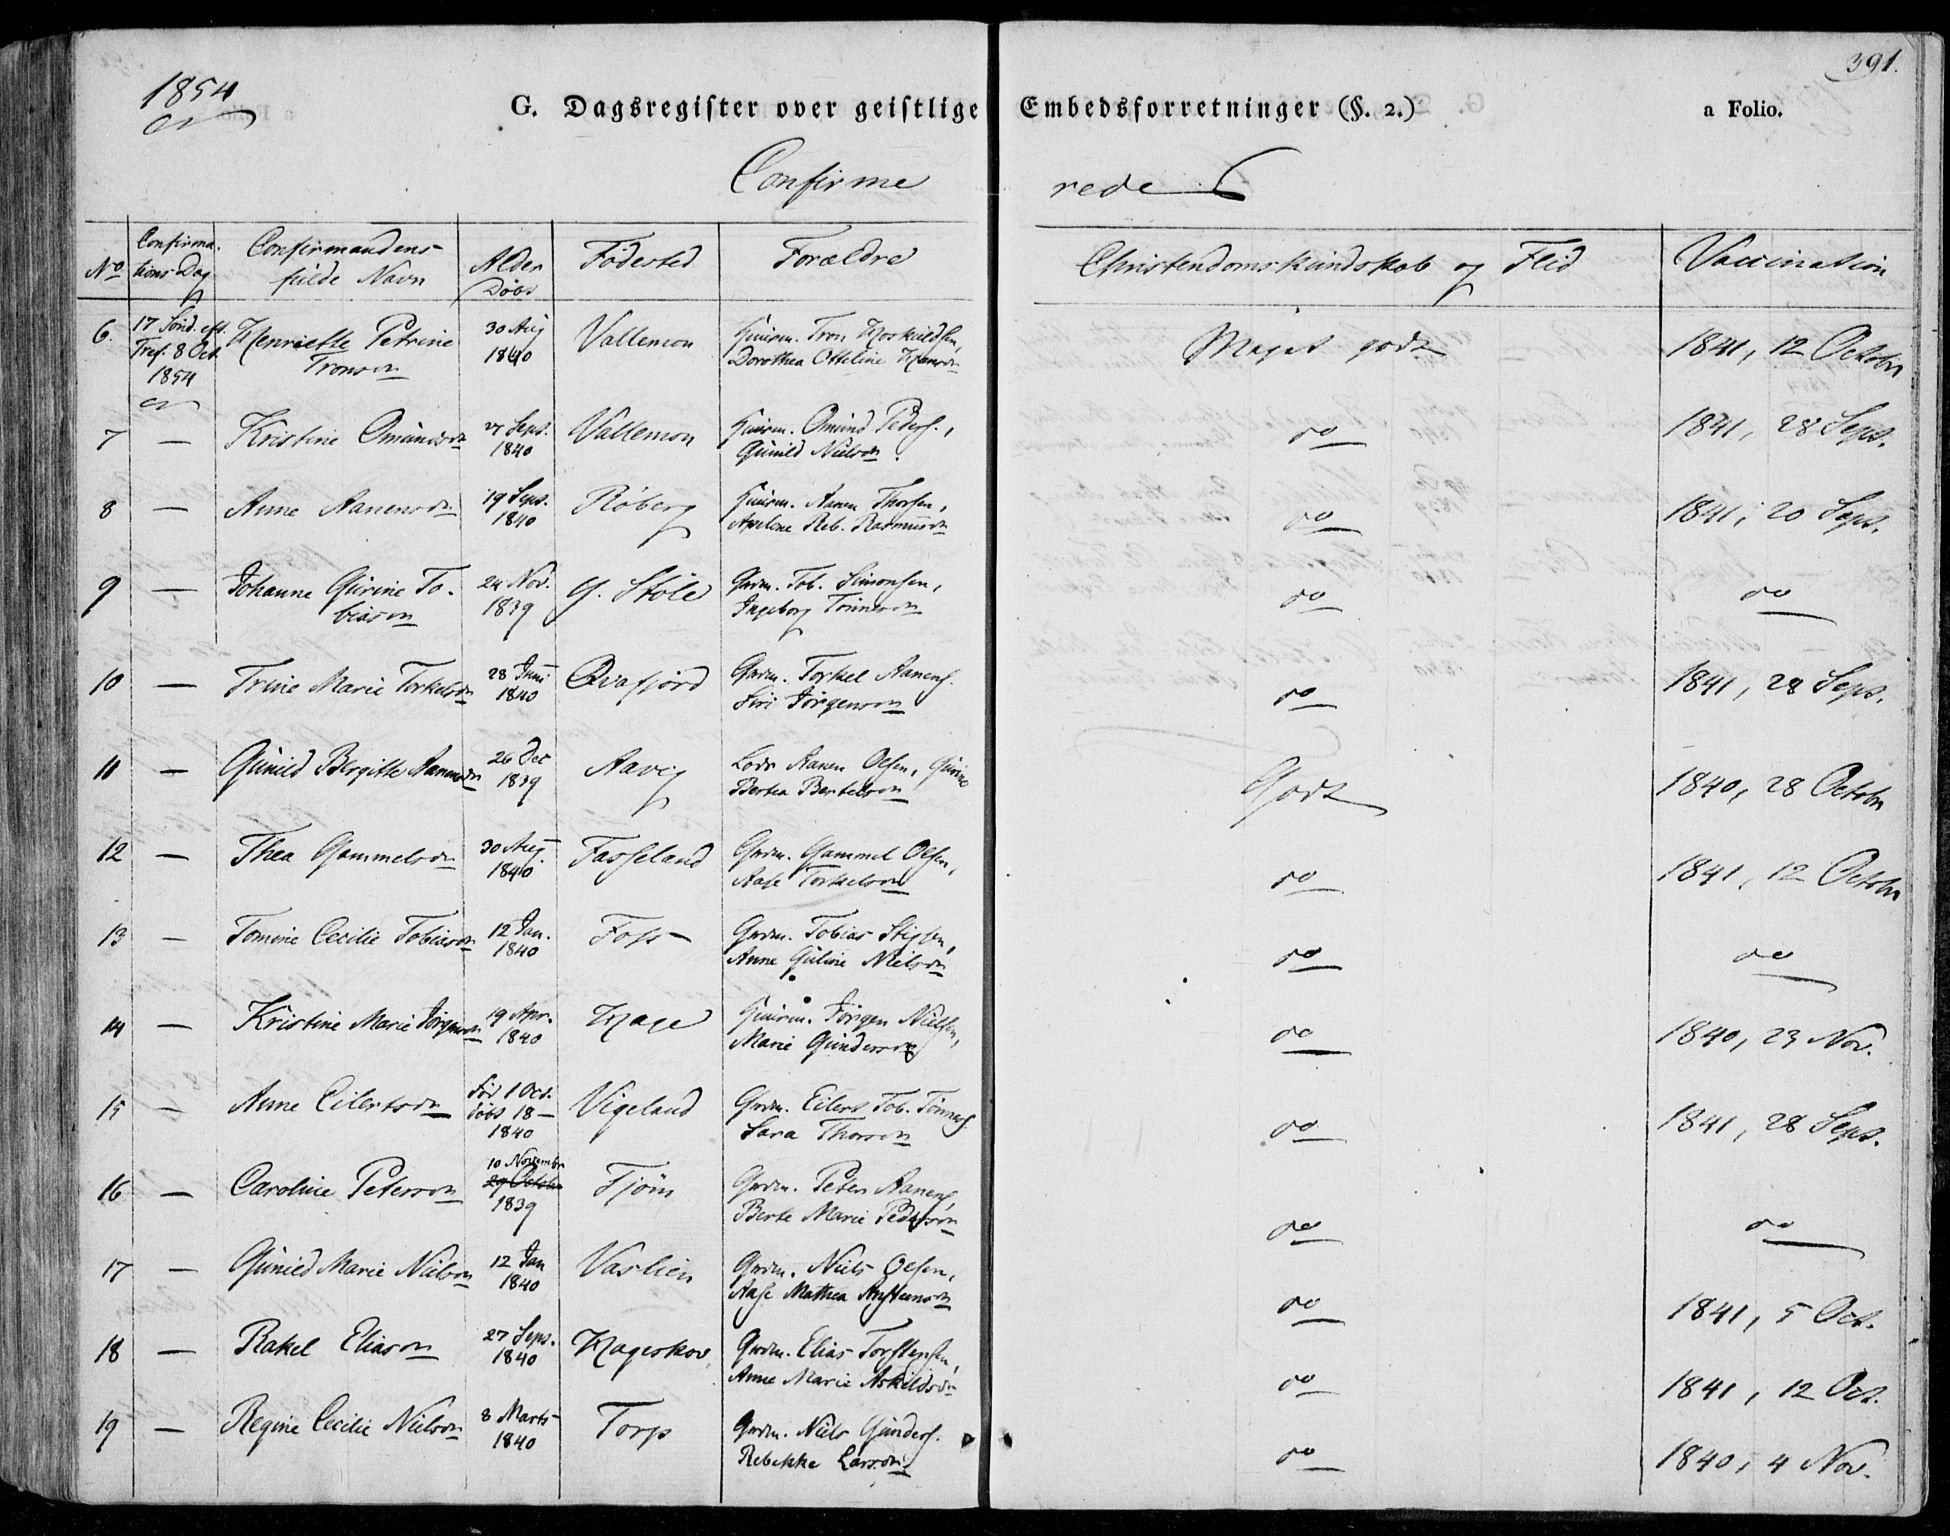 391.
1854
G. Dagsregister over geistlige Embedsforretninger (§. 2.) a Folio.
Confirmerede
No Confirmations Dag Confirmandens fulde Navn Alder Døbt Fødested Forældre Christendomskundskab og Flid Vaccination
6. 17 Sönd. eft. Tref. 8 Oct. 1854 Henriette Petrine Tronsdn 30 Aug 1840 Vallemon Huusm. Tron Hoskuldsen, Dorothea Otteline Hansdn Meget godt 1841, 12 Octobr
7 — Kristine Omundsdn 27 Sept. 1840 Vallemon Huusm. Omund Peders., Gunild Nielsdn. do 1841, 28 Sept.
8 — Anne Aanensdn 19 Sept. 1840 Röberg Huusm. Aanen Thorsen, Axeline Reb. Rasmusdn do 1841, 20 Sept.
9 — Johanne Gurine Tobiasdn 24 Nov. 1839 G. Stöle Grdm. Tob. Simonsen, Ingeborg Tönnesdn do do
10 — Trine Marie Torkelsdn 28 Juni 1840 Qvafjörd Grdm. Torkel Aanens. Siri Jörgensdn do 1841, 28 Sept.
11 — Gunild Bergitte Aanensdn 26 Dec 1839 Aavig Lods Aanen Olsen, Gurine Bertea Bertelsdn Godt 1840, 28 Octobr
12 — Thea Gammelsdn 30 Aug. 1840 Fasseland Grdm. Gammel Olsen, Aase Torkelsdn do 1841, 12 Octobr
13 — Tomine Cecilie Tobiasdn 12 Jan. 1840 Foss Grdm. Tobias Stigsen, Anne Guline Nielsdn do do
14 — Kristine Marie Jörgensdn 19 Apr. 1840 Hage Huusm. Jörgen Nielsen, Marie Gundersdn do 1840, 23 Nov.
15 — Anne Eilertsdn Fød 1 Oct. døbt 18 — 1840 Vigeland Grdm. Eilert Tob. Tönnes. Sara Thorsdn do 1841, 28 Sept.
16 — Caroline Petersdn 10 Novembr 29 Octobr 1839 Fjöm Grdm. Peter Aanens, Berte Marie Pedersdn do do
17 — Gunild Marie Nielsdn 12 Jan 1840 Vaslien Grdm. Niels Olsen, Aase Mathea Anstensdn do 1841, 5 Oct.
18 — Rakel Eliasdn 27 Sept. 1840 Hageskov Grdm. Elias Torstensen, Anne Marie Askildsdn do 1841, 12 Oct.
19 — Regine Cecilie Nielsdn 8 Marts 1840 Torp Grdm. Niels Gunders. Rebekke Larsdn do 1840, 4 Nov.